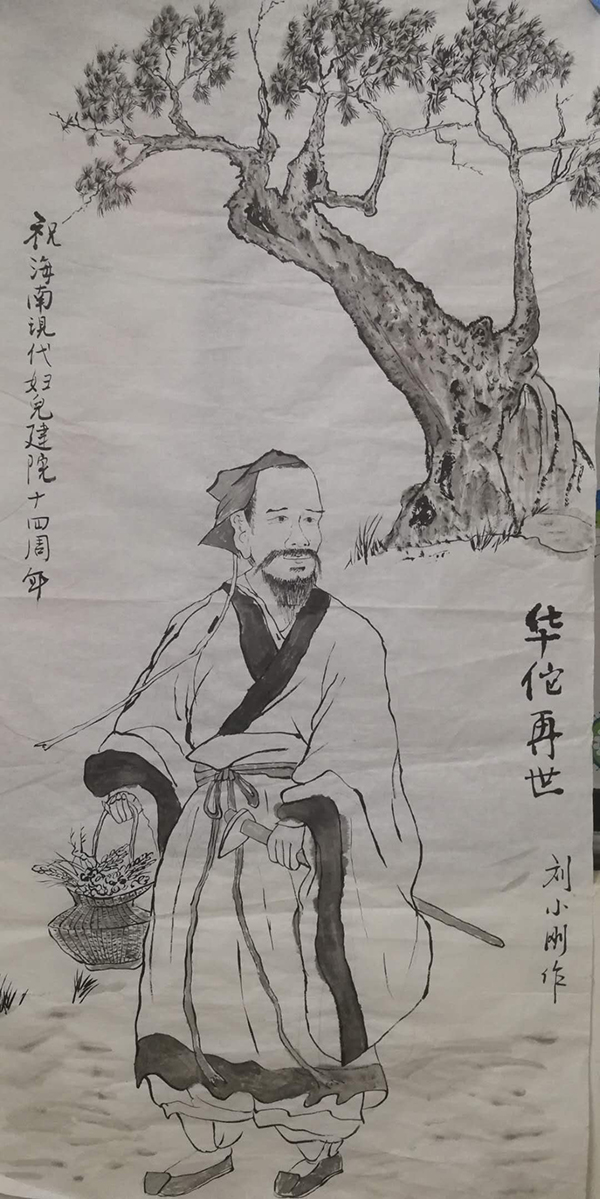 华佗再世
刘小刚作
祝海南现代妇儿建院十四周年